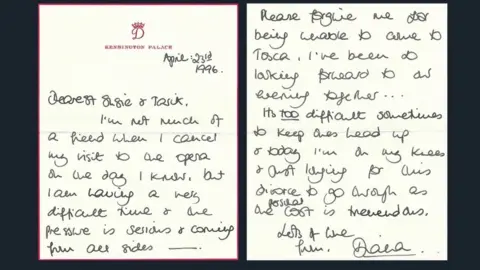 D
KENSINGTON PALACE
April. 23rd
1996.
Dearest Susie & Tarik,
I'm not much of
a friend when I cancel
my visit to the opera
on the day I know, but
I am having a very
difficult time & the
pressure is serious & coming
from all sides ——.
Please forgive me for
being unable to come to
Tosca. I've been so
looking forward to our
evening together...
It's too difficult sometimes
to keep ones head up
& today I'm on my knees
& just longing for this
divorce to go through as
the possible cost is tremendous.
Lots of love
from.
Diana..